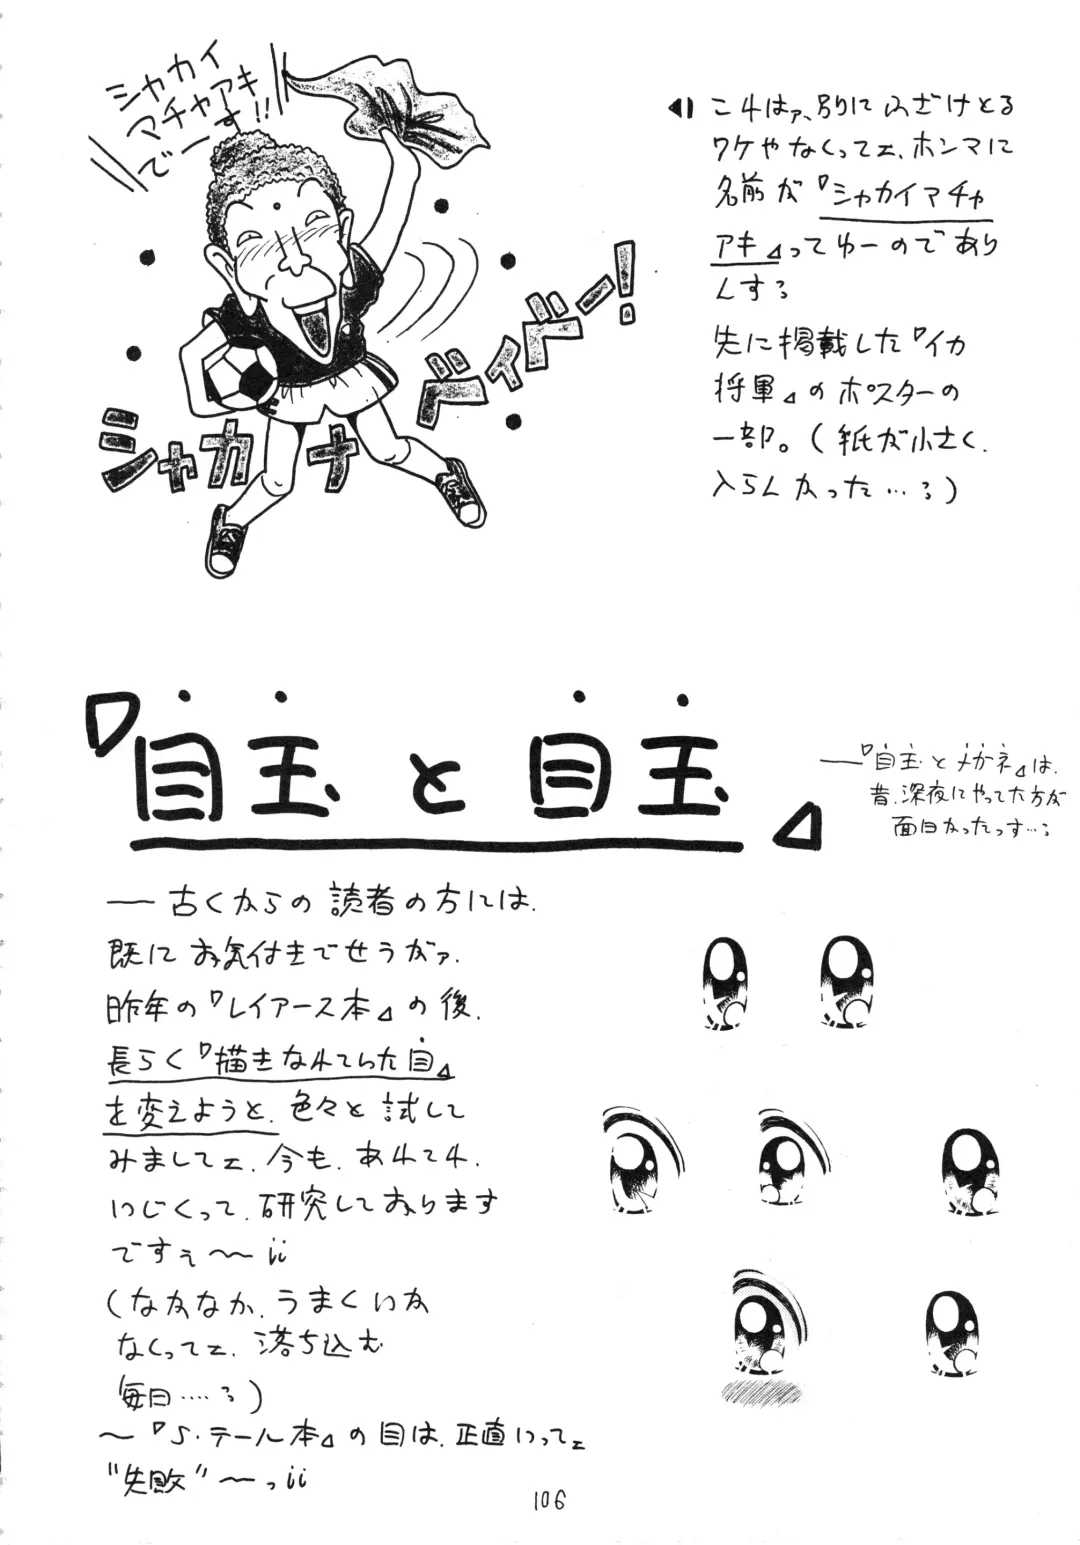 シャカイ
マチャアキ
でーす!!
シャカナベイベー!
こレはァ、別にふざけとる
ワケやなくってェ、ホンマに
名前が『シャカイマチャ
アキ』ってゆーのであり
んする
先に掲載した『イカ
将軍』のポスターの
一部。(紙が小さく、
入らんかった…る)
『目玉と目玉』
──『目玉とメガネ』は、
昔、深夜にやってた方が
面白かったっす…る
── 古くからの読者の方には、
既にお気付きでせうがァ、
昨年の『レイアース本』の後、
長らく『描きなれてらた目』
を変えようと、色々と試して
みましてェ、今も、あれてれ、
いじくって、研究しております
ですぇ〜〜ii
(なかなか、うまくいか
なくってェ、落ち込む
毎日‥‥る)
〜『S・テール本』の目は、正直いってェ
"失敗"〜っii
106